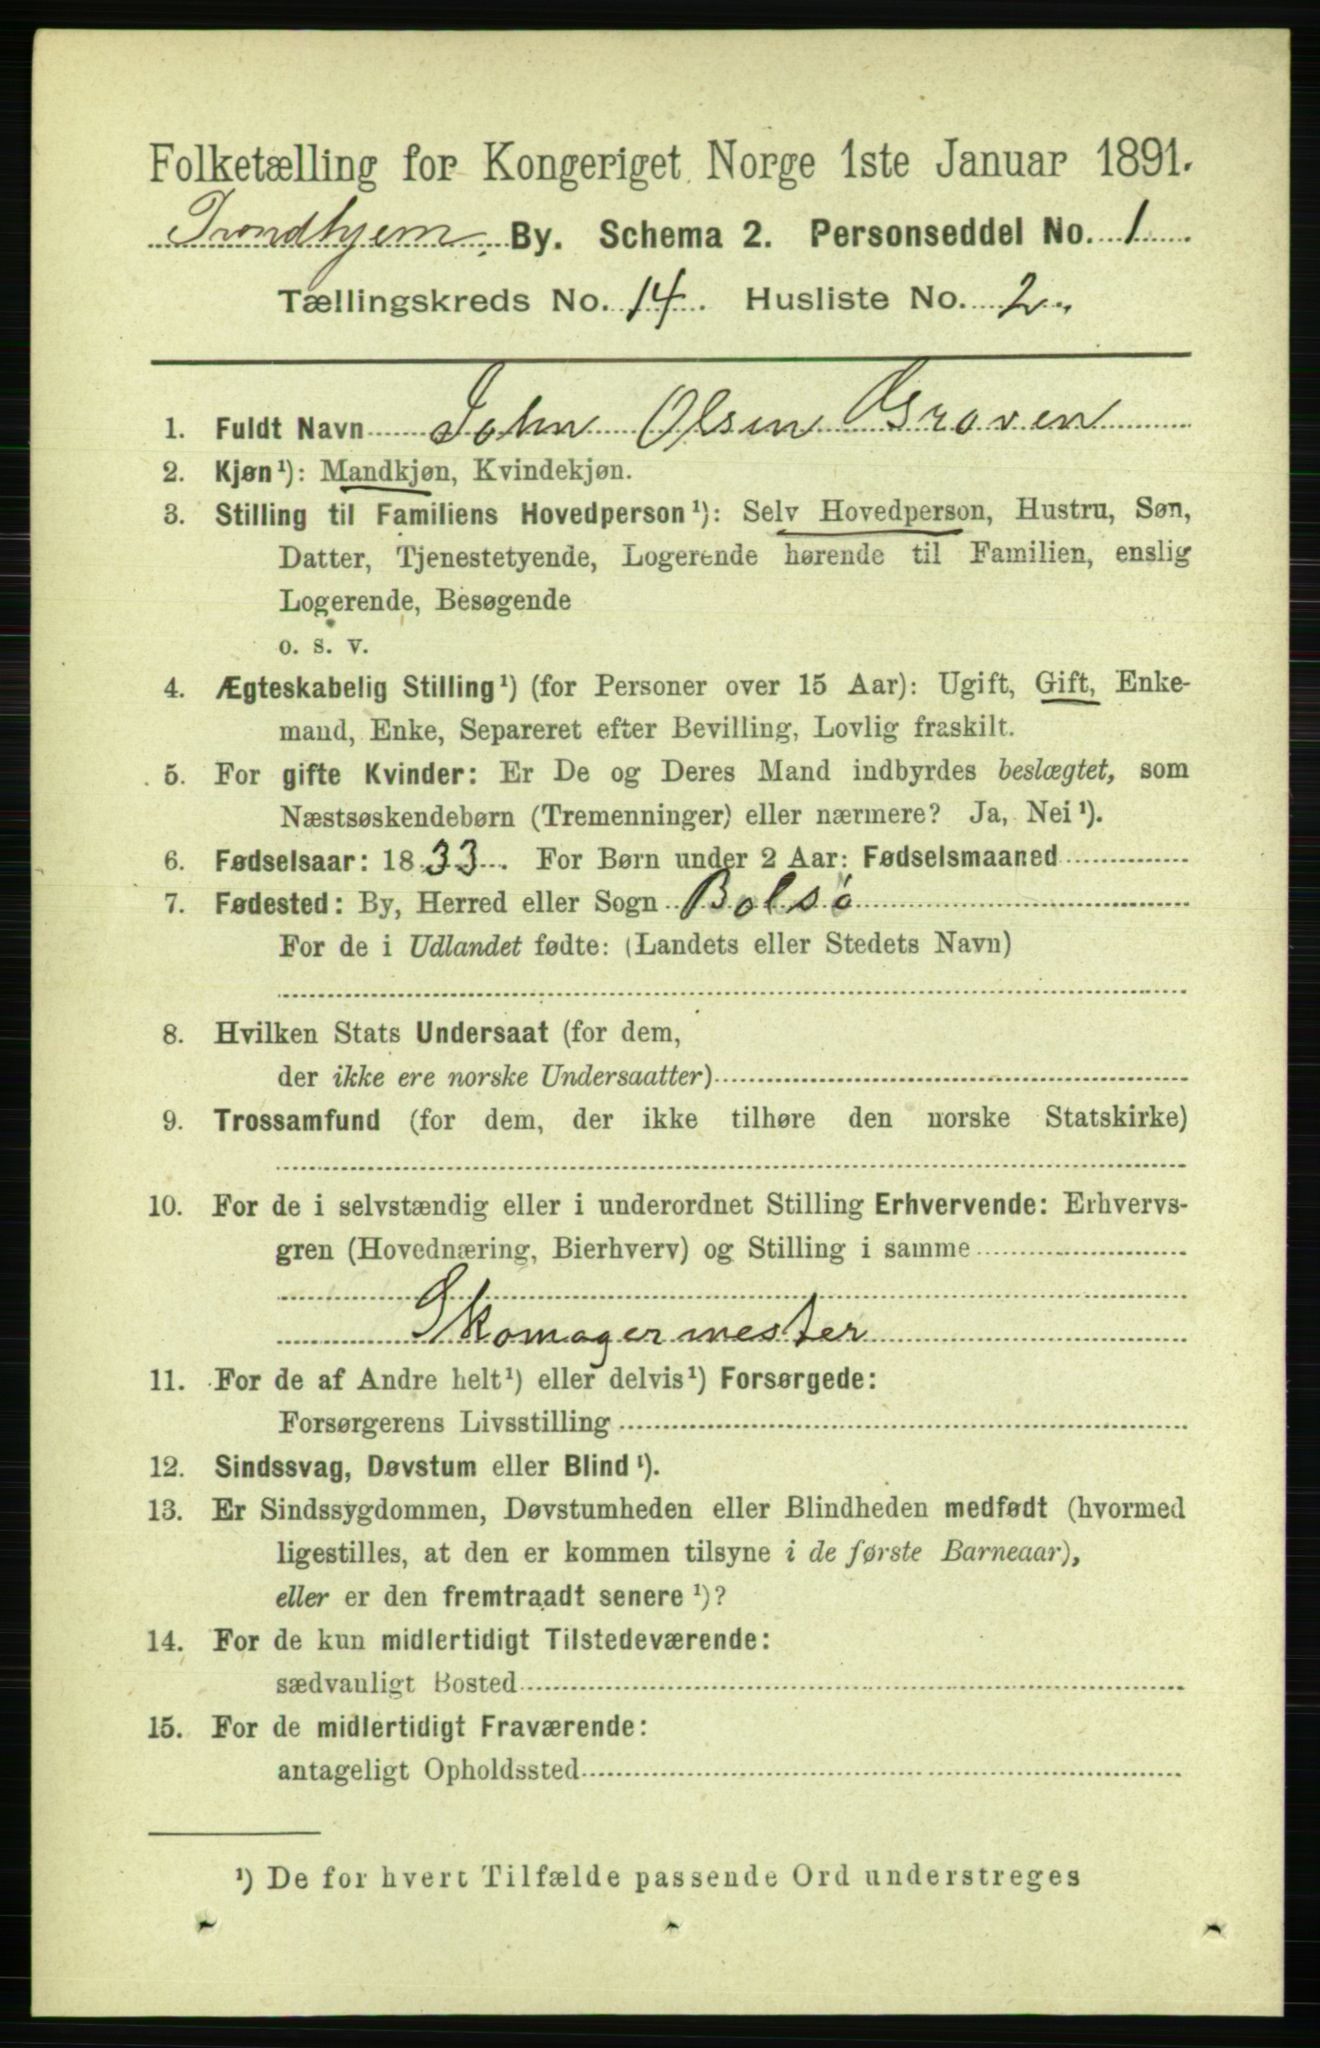 Folketælling for Kongeriget Norge 1ste Januar 1891.
Trondhjem By. Schema 2. Personseddel No. 1
Tællingskreds No. 14. Husliste No. 2
1. Fuldt Navn John Olsen Groven
2. Kjøn¹): Mandkjøn, Kvindekjøn.
3. Stilling til Familiens Hovedperson¹): Selv Hovedperson, Hustru, Søn,
Datter, Tjenestetyende, Logerende hørende til Familien, enslig
Logerende, Besøgende
o. s. v.
4. Ægteskabelig Stilling¹) (for Personer over 15 Aar): Ugift, Gift, Enke-
mand, Enke, Separeret efter Bevilling, Lovlig fraskilt.
5. For gifte Kvinder: Er De og Deres Mand indbyrdes beslægtet, som
Næstsøskendebørn (Tremenninger) eller nærmere? Ja, Nei¹).
6. Fødselsaar: 1833. For Børn under 2 Aar: Fødselsmaaned
7. Fødested: By, Herred eller Sogn Bolsø
For de i Udlandet fødte: (Landets eller Stedets Navn)
8. Hvilken Stats Undersaat (for dem,
der ikke ere norske Undersaatter)
9. Trossamfund (for dem, der ikke tilhøre den norske Statskirke)
10. For de i selvstændig eller i underordnet Stilling Erhvervende: Erhvervs-
gren (Hovednæring, Bierhverv) og Stilling i samme
Skomagermester
11. For de af Andre helt¹) eller delvis¹) Forsørgede:
Forsørgerens Livsstilling
12. Sindssvag, Døvstum eller Blind¹).
13. Er Sindssygdommen, Døvstumheden eller Blindheden medfødt (hvormed
ligestilles, at den er kommen tilsyne i de første Barneaar),
eller er den fremtraadt senere¹)?
14. For de kun midlertidigt Tilstedeværende:
sædvanligt Bosted
15. For de midlertidigt Fraværende:
antageligt Opholdssted
¹) De for hvert Tilfælde passende Ord understreges